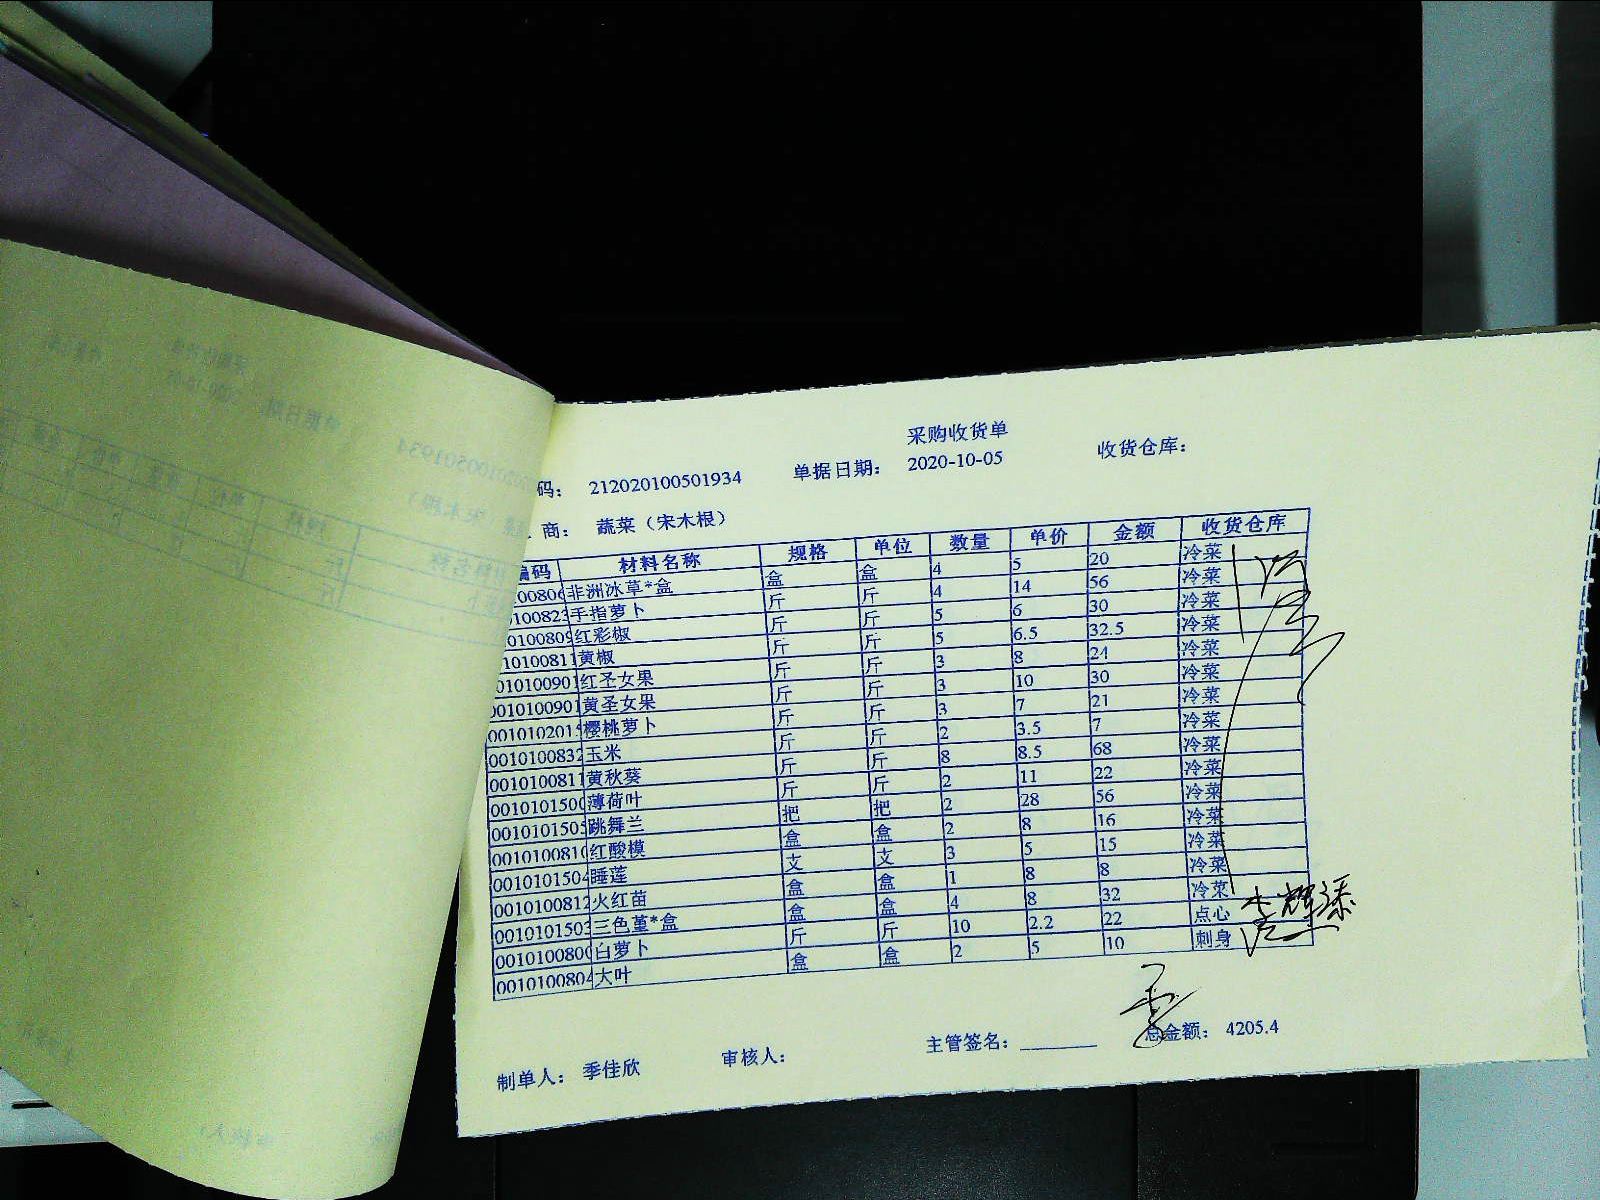 采购收货单
码： 212020100501934 单据日期： 2020-10-05 收货仓库：
商： 蔬菜（宋木根）
编码 材料名称 规格 单位 数量 单价 金额 收货仓库
00806 非洲冰草*盒 盒 盒 4 5 20 冷菜
100823 手指萝卜 斤 斤 4 14 56 冷菜
0100809 红彩椒 斤 斤 5 6 30 冷菜
10100811 黄椒 斤 斤 5 6.5 32.5 冷菜
010100901 红圣女果 斤 斤 3 8 24 冷菜
010100901 黄圣女果 斤 斤 3 10 30 冷菜
001010201 樱桃萝卜 斤 斤 3 7 21 冷菜
0010100832 玉米 斤 斤 2 3.5 7 冷菜
0010100811 黄秋葵 斤 斤 8 8.5 68 冷菜
001010150 薄荷叶 斤 斤 2 11 22 冷菜
0010101505 跳舞兰 把 把 2 28 56 冷菜
001010081 红酸模 盒 盒 2 8 16 冷菜
0010101504 睡莲 支 支 3 5 15 冷菜
0010100812 火红苗 盒 盒 1 8 8 冷菜
0010101503 三色堇*盒 盒 盒 4 8 32 冷菜
001010080 白萝卜 斤 斤 10 2.2 22 点心
0010100804 大叶 盒 盒 2 5 10 刺身
制单人： 季佳欣 审核人： 主管签名： 总金额： 4205.4